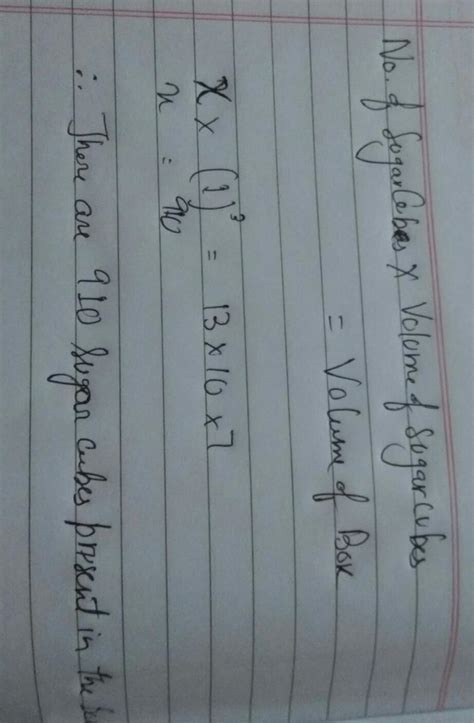 No. of Sugar Cubes × Volume of Sugar cubes
= Volume of Box
x × (1)³ = 13 × 10 × 7
x = 910
∴ There are 910 Sugar cubes present in the